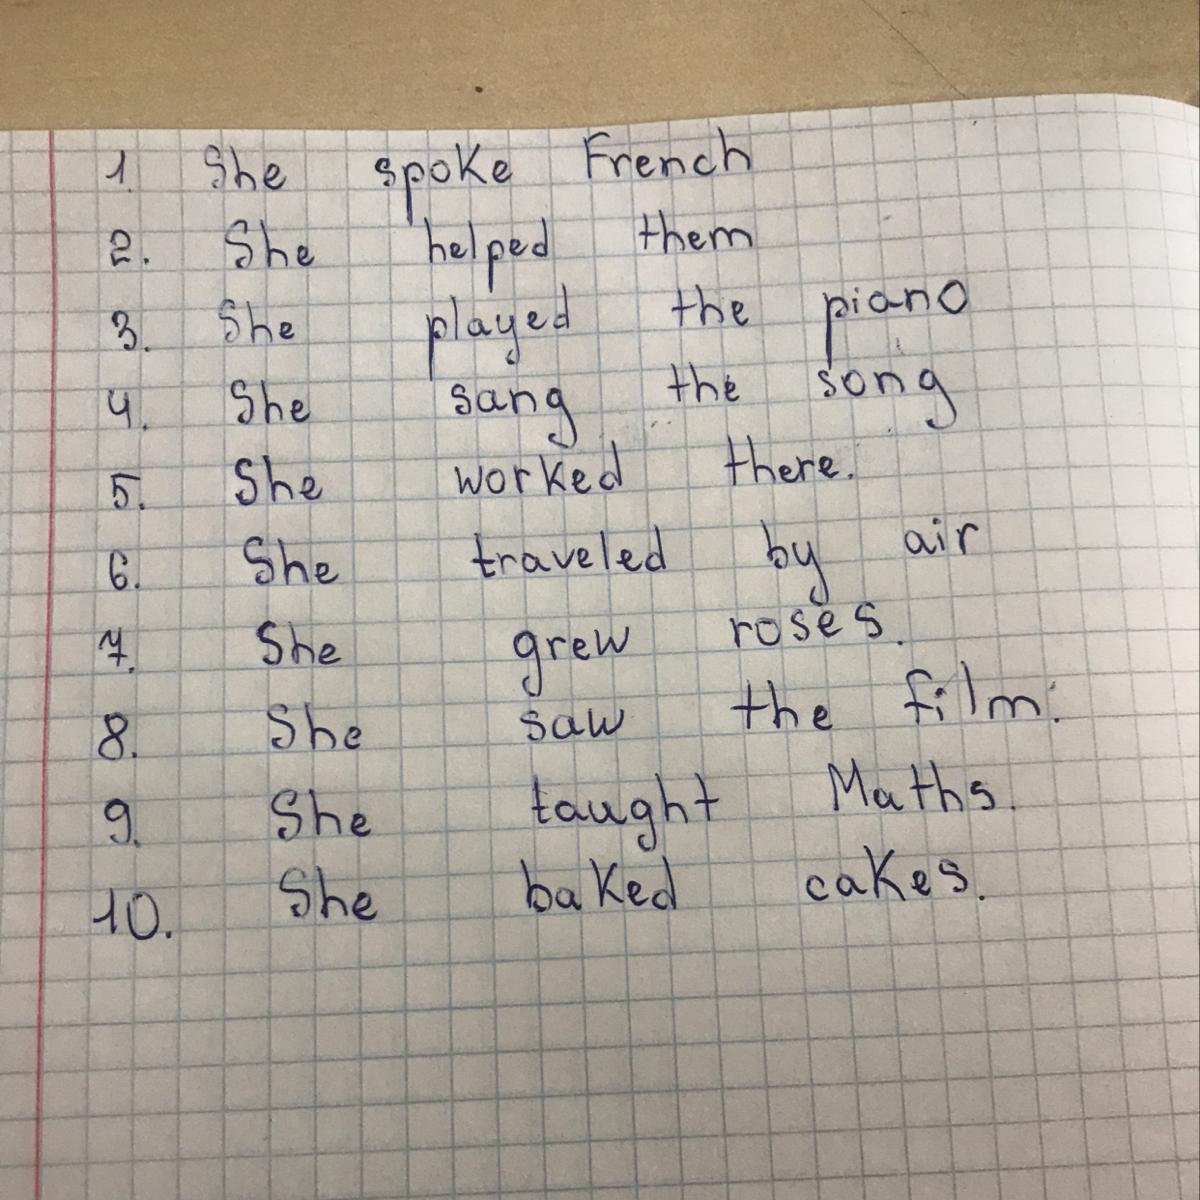 1. She spoke French
2. She helped them
3. She played the piano
4. She sang the song
5. She worked there.
6. She traveled by air
7. She grew roses.
8. She saw the film.
9. She taught Maths.
10. She baked cakes.